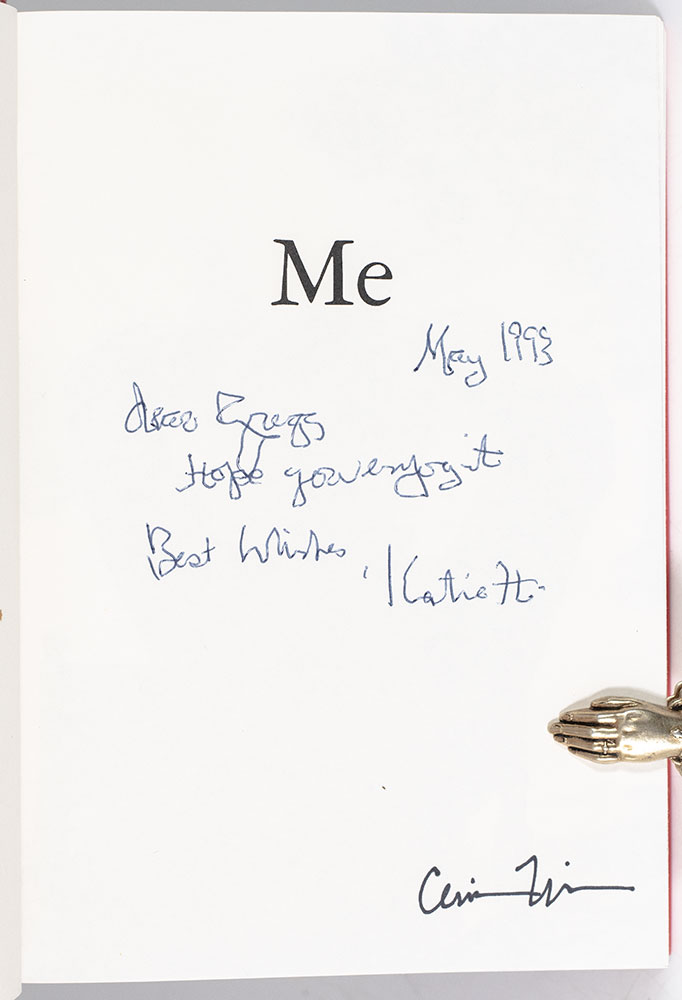 Me
May 1993
Dear Gregg
Hope you enjoy it
Best Wishes
Katie H.